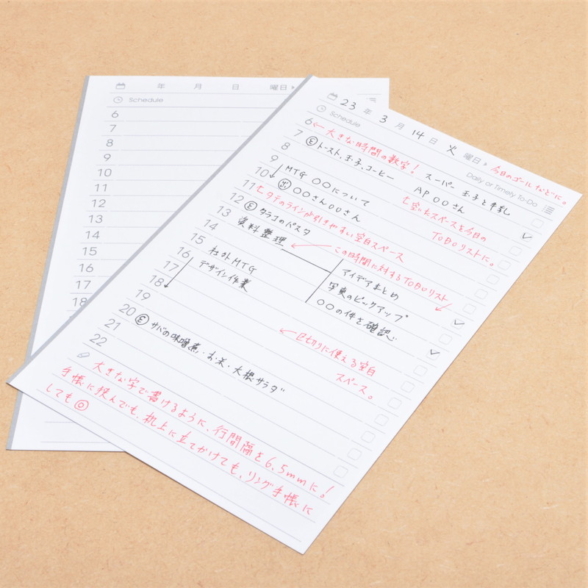 年 月 日 曜日
Schedule
6
7
8
9
10
11
12
13
14
15
16
17
18
23 年 3 月 14 日 火 曜日
今日のゴールなどに。
Schedule
Daily or Timely To Do
6 ← 大きな時間の数字！
7 トースト、玉子、コーヒー
スーパー 玉子と牛乳
8
AP ○○さん
9 MTG ○○について
10 ○○さん○○さん
TO DO リストに。
11 タテのラインが引きやすい空白スペース
12 タラコのパスタ
この時間に対する TO DO リスト
13 資料整理
アイデアまとめ
14
写真のピックアップ
15 社外 MTG
○○の件を確認
16 デザイン作業
17
18
← 区切りに使える空白
スペース。
19
20 サバの味噌煮・お米・大根サラダ
21
22
大きな字で書けるように、行間隔を6.5mmに！
手帳に挟んでも、机上に立てかけても、リング手帳に
しても◎